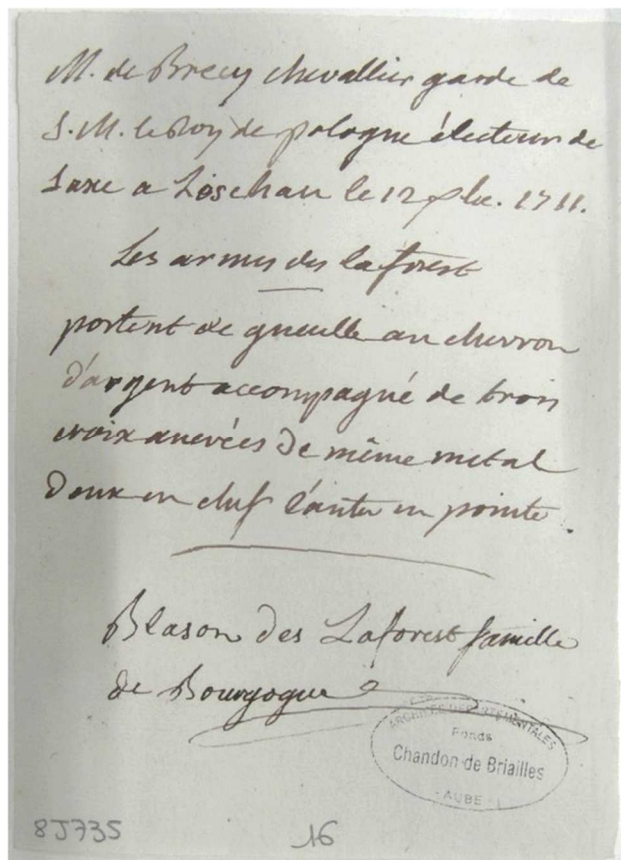 M. de Brecy chevallier garde de
S. M. le Roy de pologne électeur de
Saxe a Loschau le 12 1711.
Les armes des laforest
portent de gueulle au chevron
d'argent accompagné de trois
croix ancrées de même metal
Deux en chef l'autre en pointe.
Blason des Laforest famille
de Bourgogne
ARCHIVES DEPARTEMENTALES
Fonds
Chandon de Briailles
AUBE
8J735
16